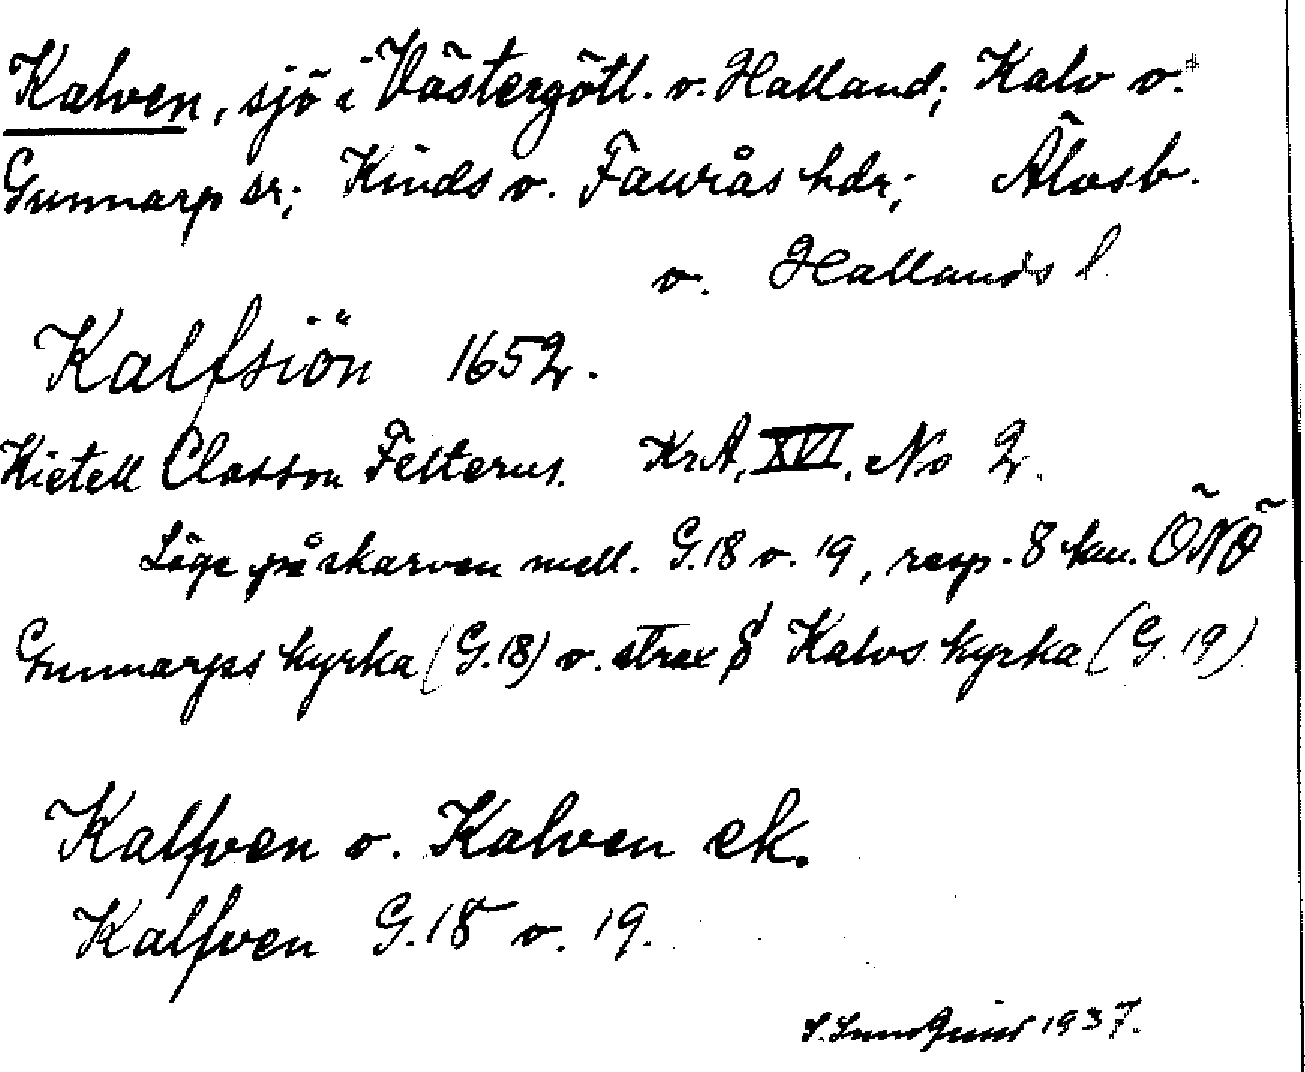 Kalven, sjö i Västergötl. o. Halland; Kalv o.
Gunnarp sr; Kinds o. Faurås hdr; Älvsb.
o. Hallands l.
Kalfsiön 1652.
Kietell Classon Felterus. KrA, XVI, No 2.
Läge på skarven mell. G.18 o. 19, resp. 8 km. ÖNÖ
Gunnarps kyrka (G.18) o. strax S Kalvs kyrka (G.19)
Kalfven o. Kalven ek.
Kalfven G.18 o. 19.
S. Lundquist 1937.